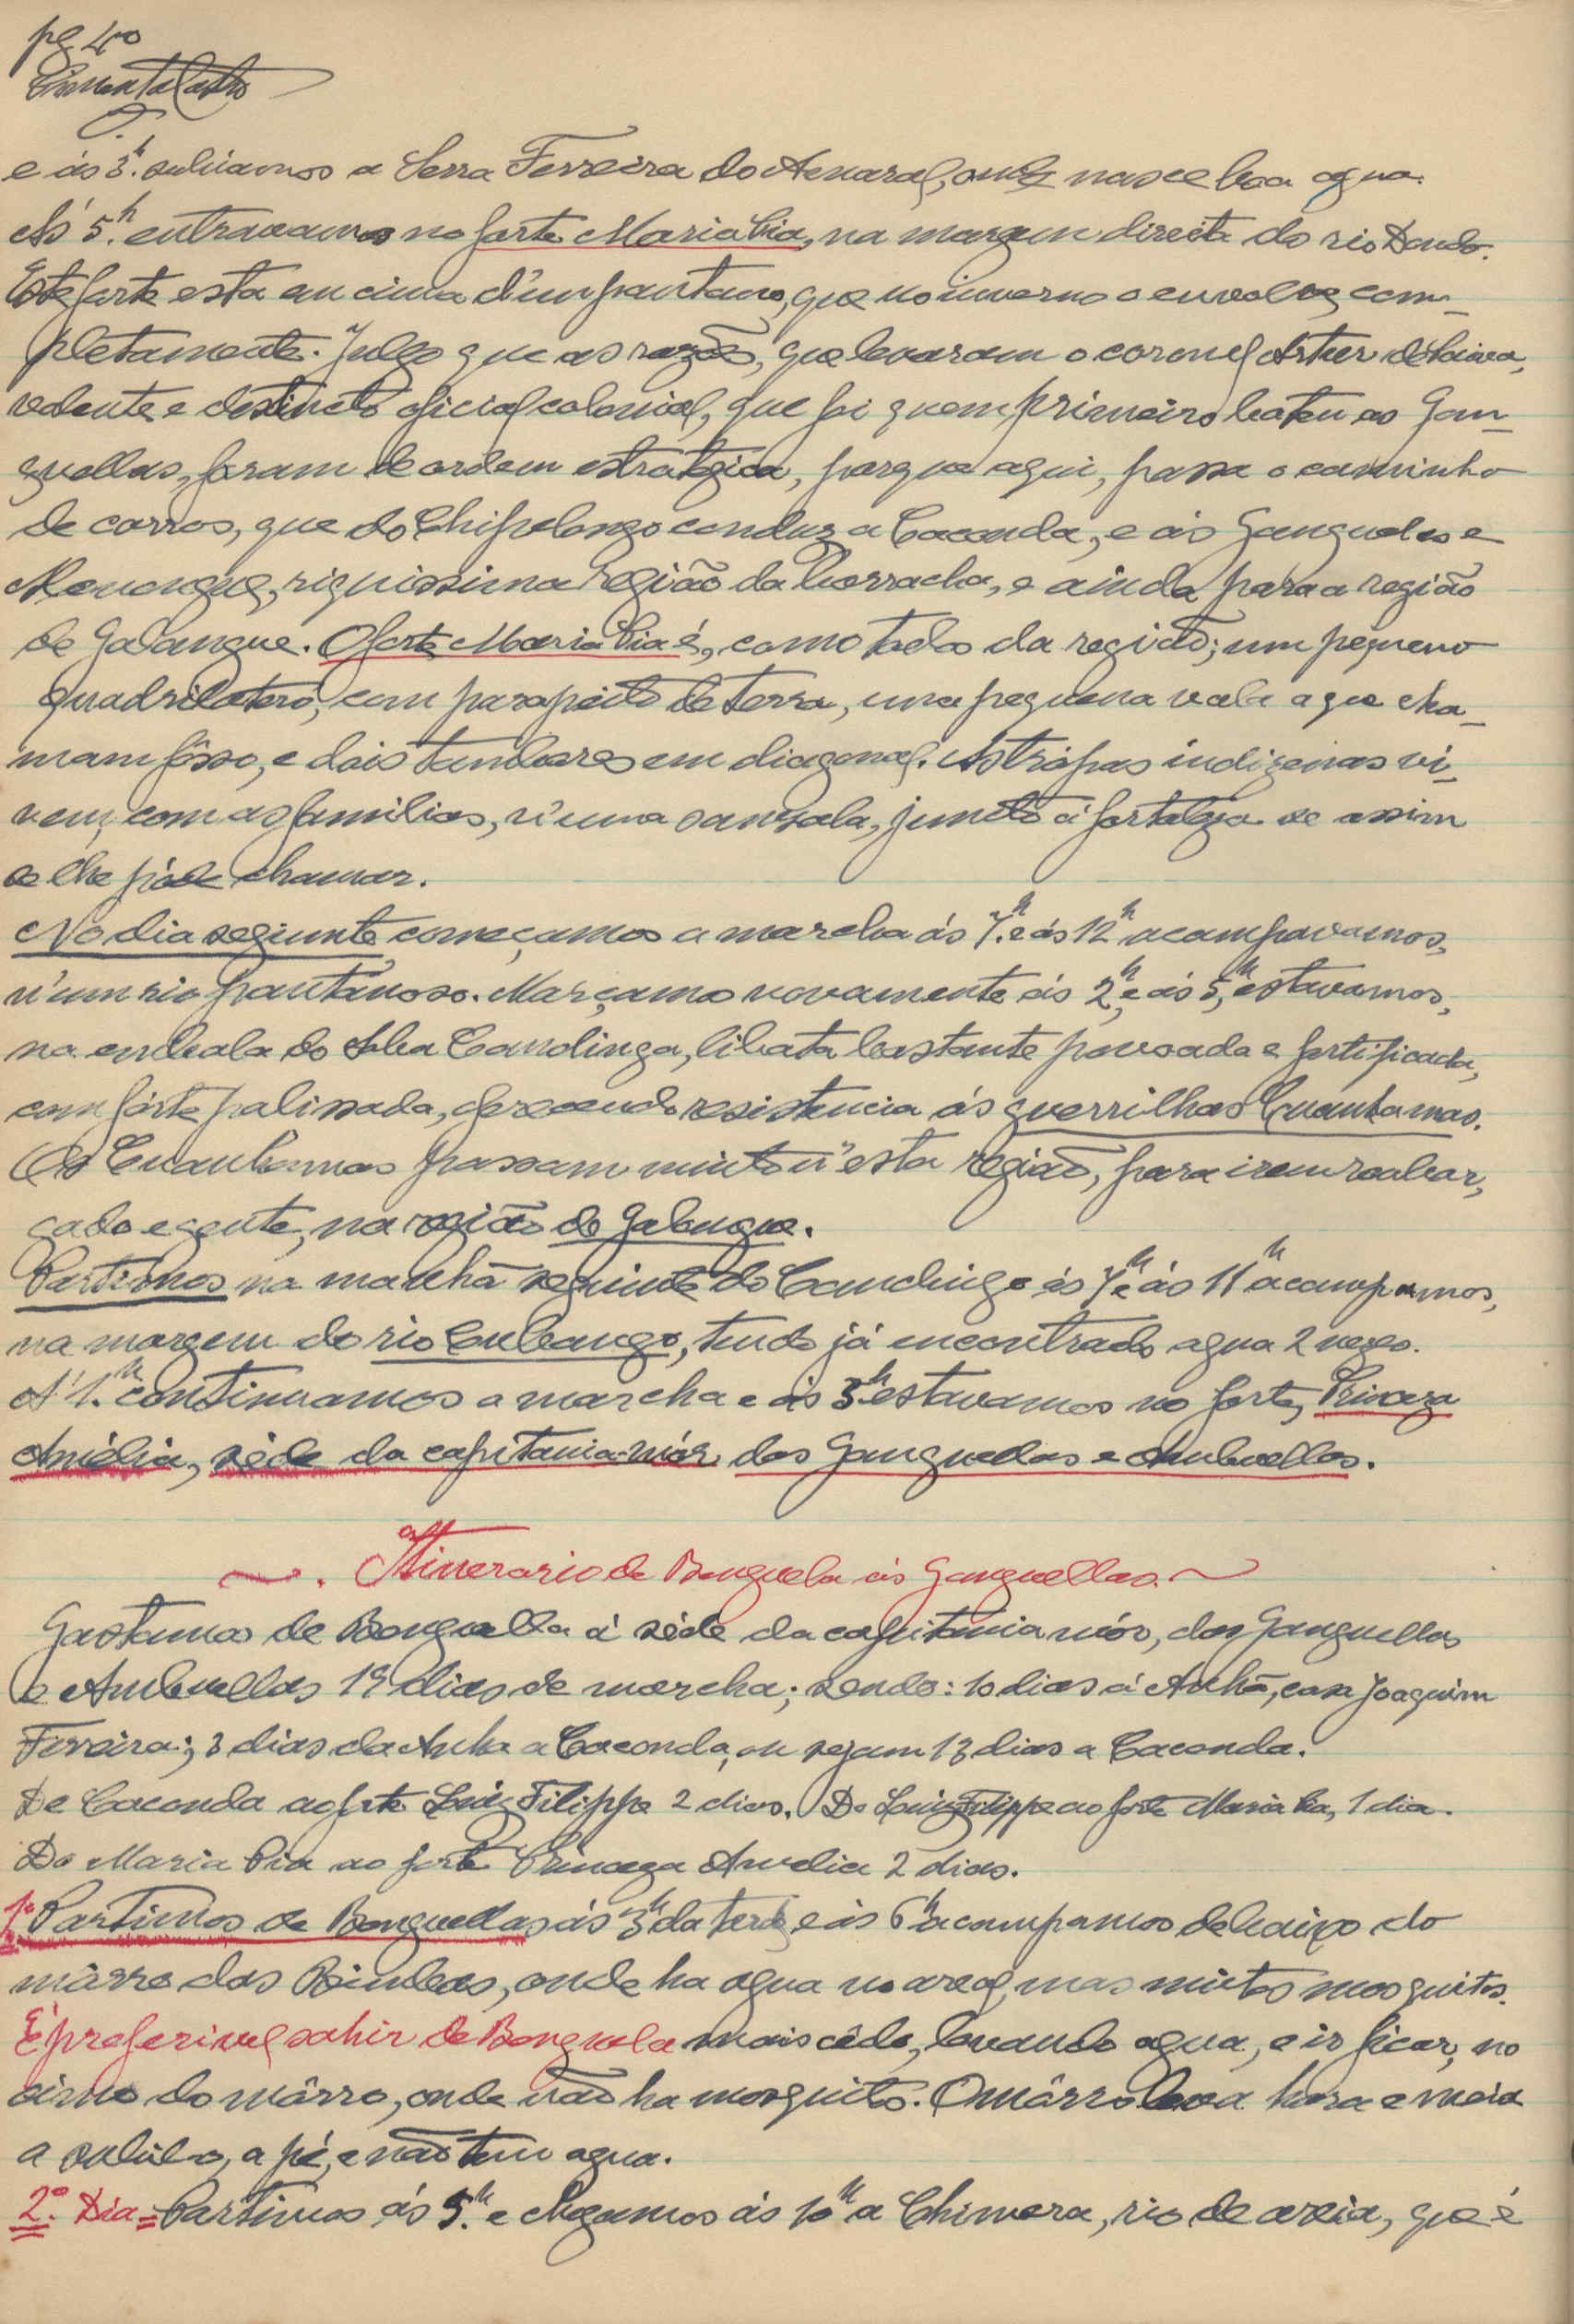 pg 40
Pimenta Castro
e ás 3h. subiamos a Serra Ferreira do Amaral, onde nasce boa agua.
Ás 5h. entravamos no forte Maria Pia, na margem direita do rio
Este forte esta em cima d'um pantano, que no inverno o envolve com-
pletamente. Julgo que as razões, que levaram o coronel Artur de Paiva,
valente e destincto oficial colonial, que foi quem primeiro bateu os Gan-
guellas, foram de ordem estrategica, porque aqui, passa o caminho
de carros, que do Chipelongo conduz a Caconda, e ás Ganguelas e
Menongue, riquissima região da borracha, e ainda para a região
de Galangue. O forte Maria Pia é, como todos da região; um pequeno
quadrilatero, com parapeito de terra, uma pequena vala a que cha-
mam fôsso, e dois tambores em diagonal. As trópas indigenas vi-
vem, com as familias, n'uma sanzala, juncto á fortaleza se assim
se lhe póde chamar.
No dia seguinte começamos a marcha ás 7h. e ás 12h acampavamos,
n'um rio pantanoso. Marçamos novamente ás 2h, e ás 5h, estavamos,
na embala do Soba Candinga, libata bastante povoada e fortificada,
com fórte palissada, oferecendo resistencia ás guerrilhas Cuanhamas.
Os Cuanhamas passam muito n'esta região, para irem roubar,
gado e gente, na região de Galangue.
Partimos na manhã seguinte do Candinga ás 7h e ás 11h acampamos,
na margem do rio Cubango, tendo já encontrado agua 2 vezes.
Á 1h. continuamos a marcha e ás 3h estavamos no forte, Princeza
Amélia, séde da capitania-mór dos Ganguelas e Ambuellas.
Itinerario de Benguela ás Ganguellas.
Gastamos de Benguella á séde da capitania mór, dos Ganguellas
e Ambuellas 18 dias de marcha; sendo: 10 dias á casa Joaquim
Ferreira; 3 dias da a Caconda, ou sejam 13 dias a Caconda.
De Caconda ao forte Luiz Filippe 2 dias. De Luiz Filippe ao forte Maria Pia, 1 dia.
De Maria Pia ao forte Princeza Amelia 2 dias.
1º Partimos de Benguella ás 3h da tarde e ás 6h acampamos debaixo do
môrro das Bimbas, onde ha agua no areal, mas muitos mosquitos.
É preferivel sahir de Benguela mais cêdo, levando agua, e ir ficar, no
cimo do môrro, onde não ha mosquitos. O môrro leva hora e meia
a subil-o, a pé, e não tem agua.
2º. Dia = Partimos ás 5h. e chegamos ás 10h a Chimera, rio de areia, que é